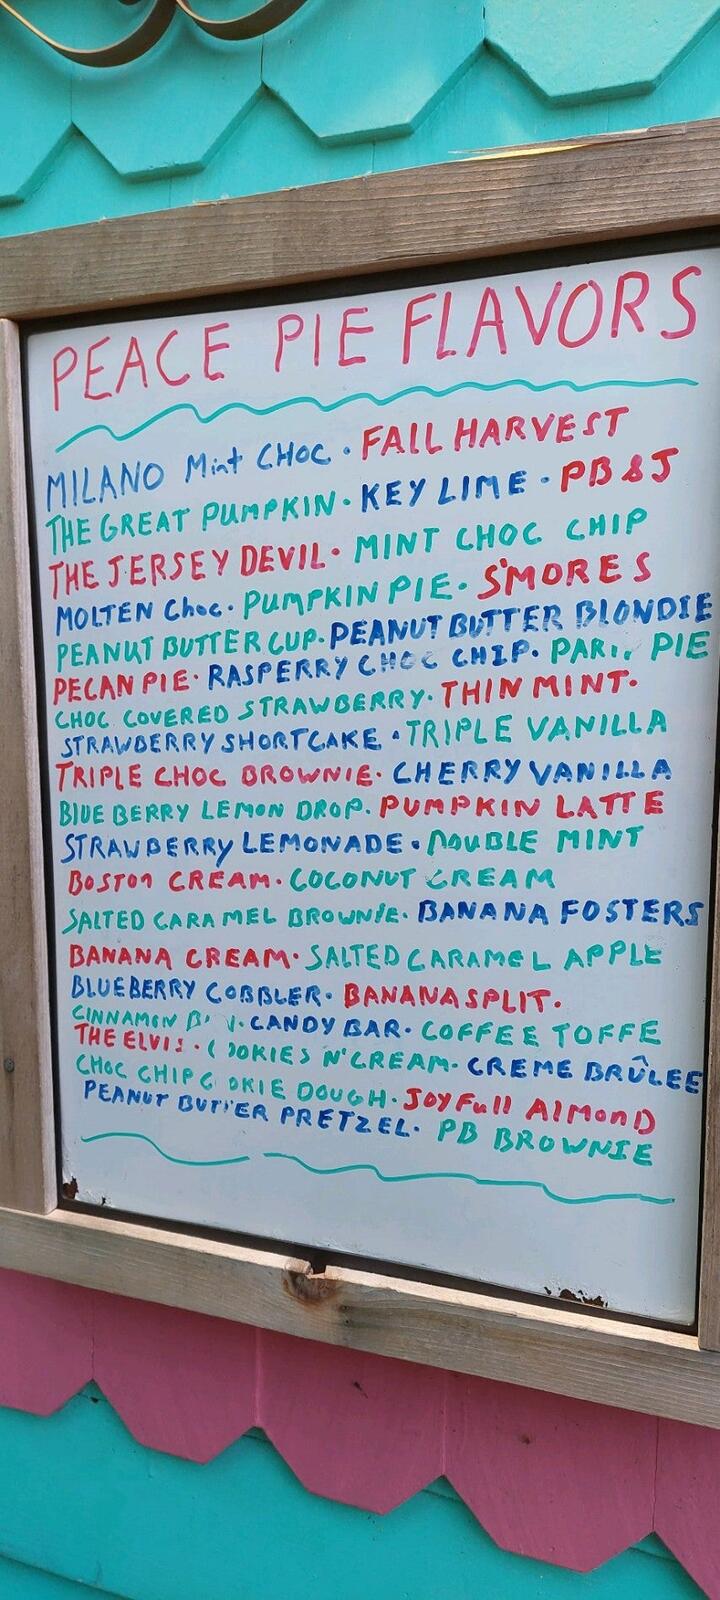 PEACE PIE FLAVORS
MILANO Mint CHOC · FALL HARVEST
THE GREAT PUMPKIN · KEY LIME · PB&J
THE JERSEY DEVIL · MINT CHOC CHIP
MOLTEN Choc · PUMPKIN PIE · S'MORES
PEANUT BUTTER CUP · PEANUT BUTTER BLONDIE
PECAN PIE · RASPERRY CHOC CHIP · PIE
CHOC COVERED STRAWBERRY · THIN MINT ·
STRAWBERRY SHORTCAKE · TRIPLE VANILLA
TRIPLE CHOC BROWNIE · CHERRY VANILLA
BLUEBERRY LEMON DROP · PUMPKIN LATTE
STRAWBERRY LEMONADE · DOUBLE MINT
BOSTON CREAM · COCONUT CREAM
SALTED CARAMEL BROWNIE · BANANA FOSTERS
BANANA CREAM · SALTED CARAMEL APPLE
BLUEBERRY COBBLER · BANANA SPLIT ·
CINNAMON · CANDY BAR · COFFEE TOFFE
THE ELVIS · COOKIES N' CREAM · CREME BRÛLEE
CHOC CHIP COOKIE DOUGH · JOYFull AlMOND
PEANUT BUTTER PRETZEL · PB BROWNIE